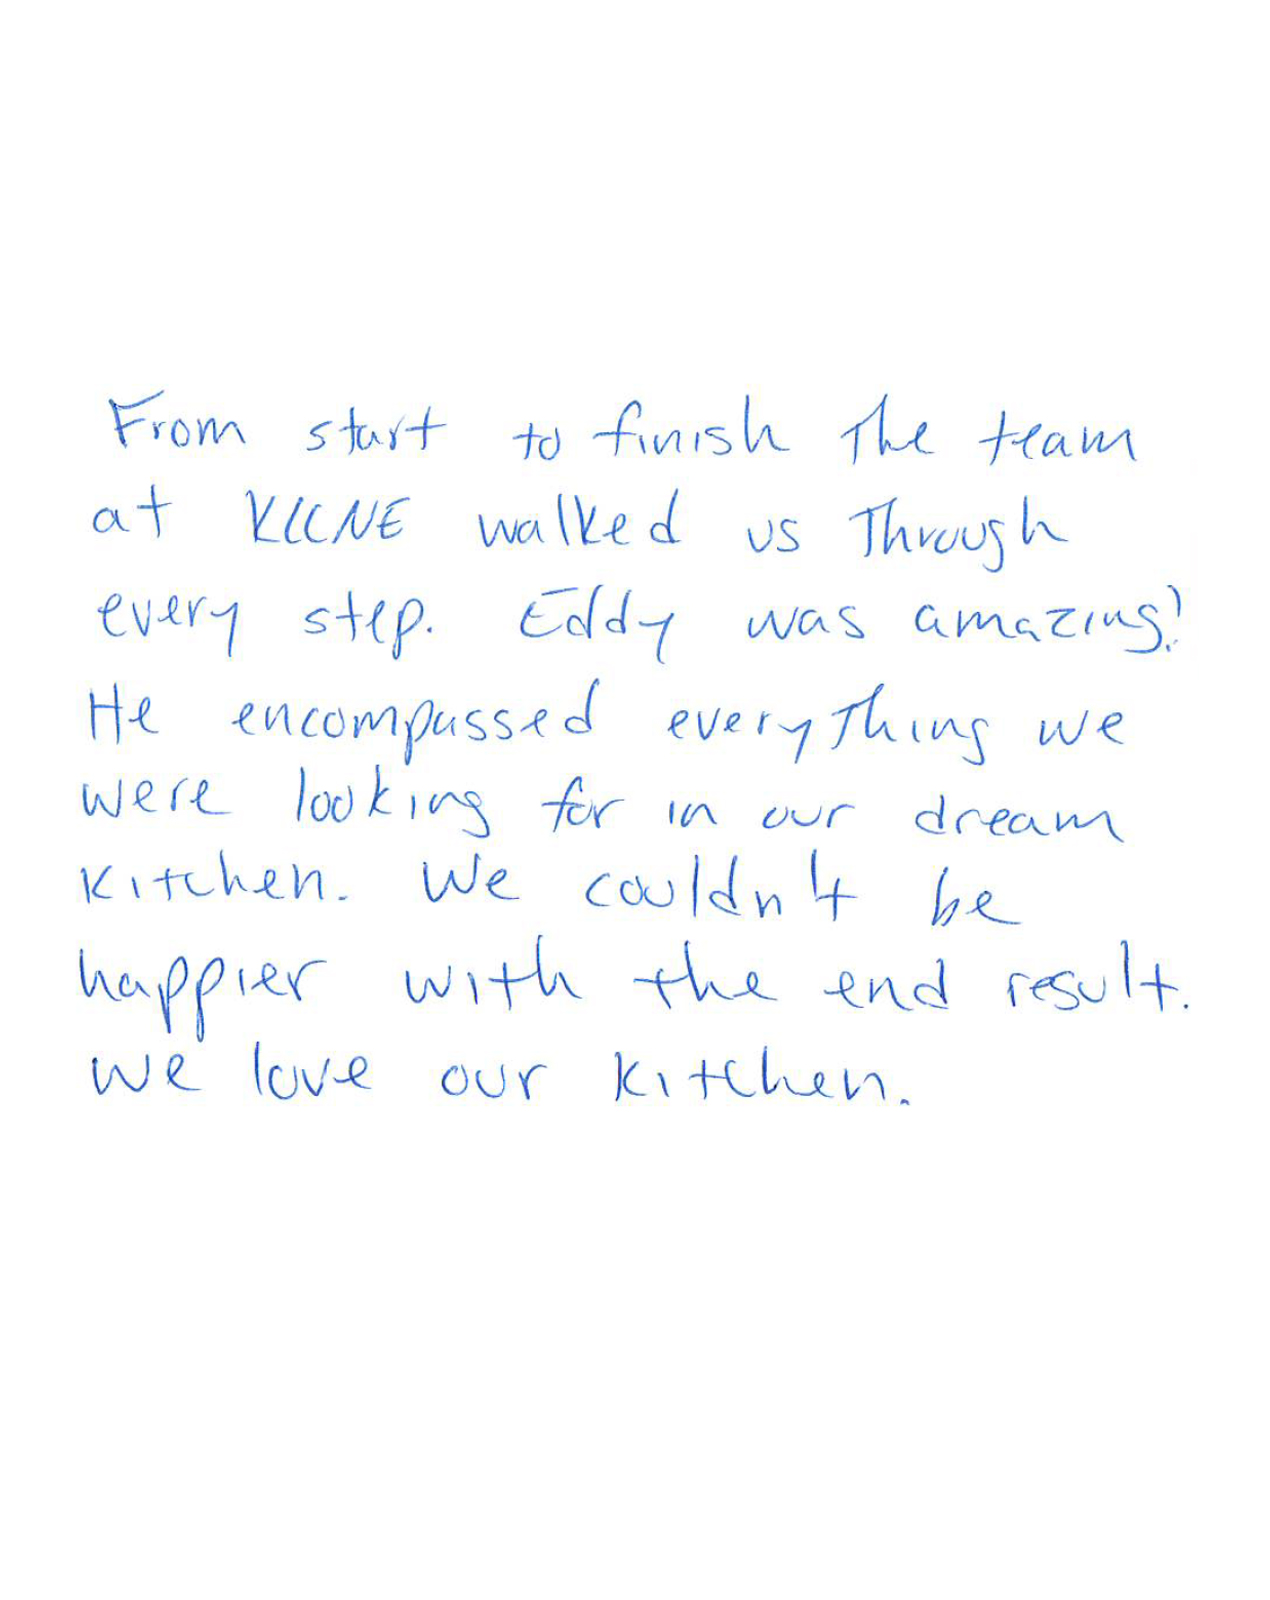 From start to finish the team
at KCCNE walked us through
every step. Eddy was amazing!
He encompassed everything we
were looking for in our dream
kitchen. We couldn't be
happier with the end result.
We love our kitchen.